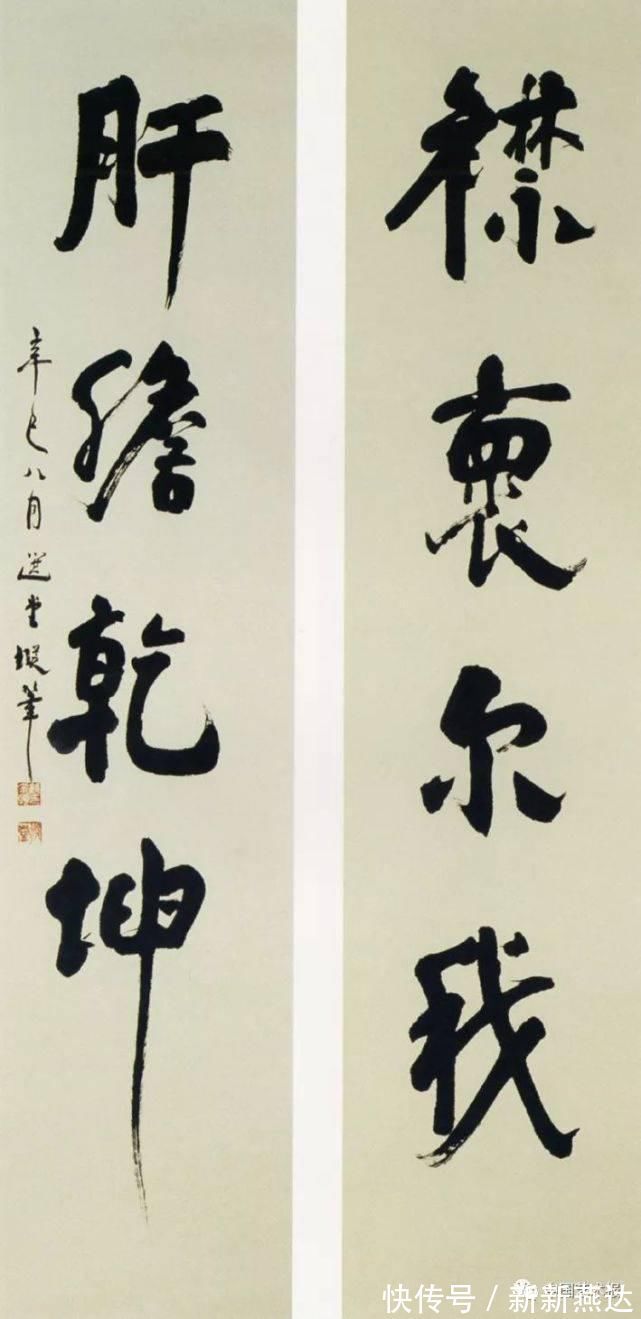 襟裏尔我
肝膽乾坤
辛巳八月選堂撥筆
快传号 / 新新燕达